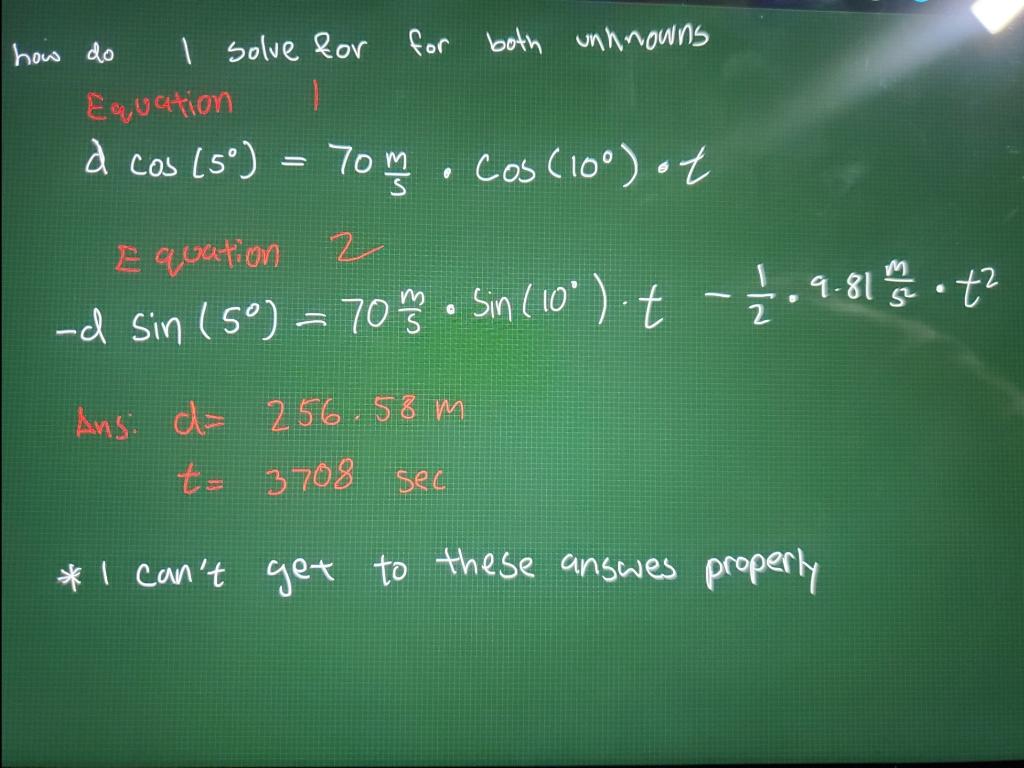 how do I solve for for both unknowns
Equation 1
d cos (5°) = 70 m/s · cos (10°) · t
Equation 2
-d sin (5°) = 70 m/s · sin (10°) · t - 1/2 · 9.81 m/s² · t²
Ans: d= 256.58 m
t= 3708 sec
* I can't get to these answes properly